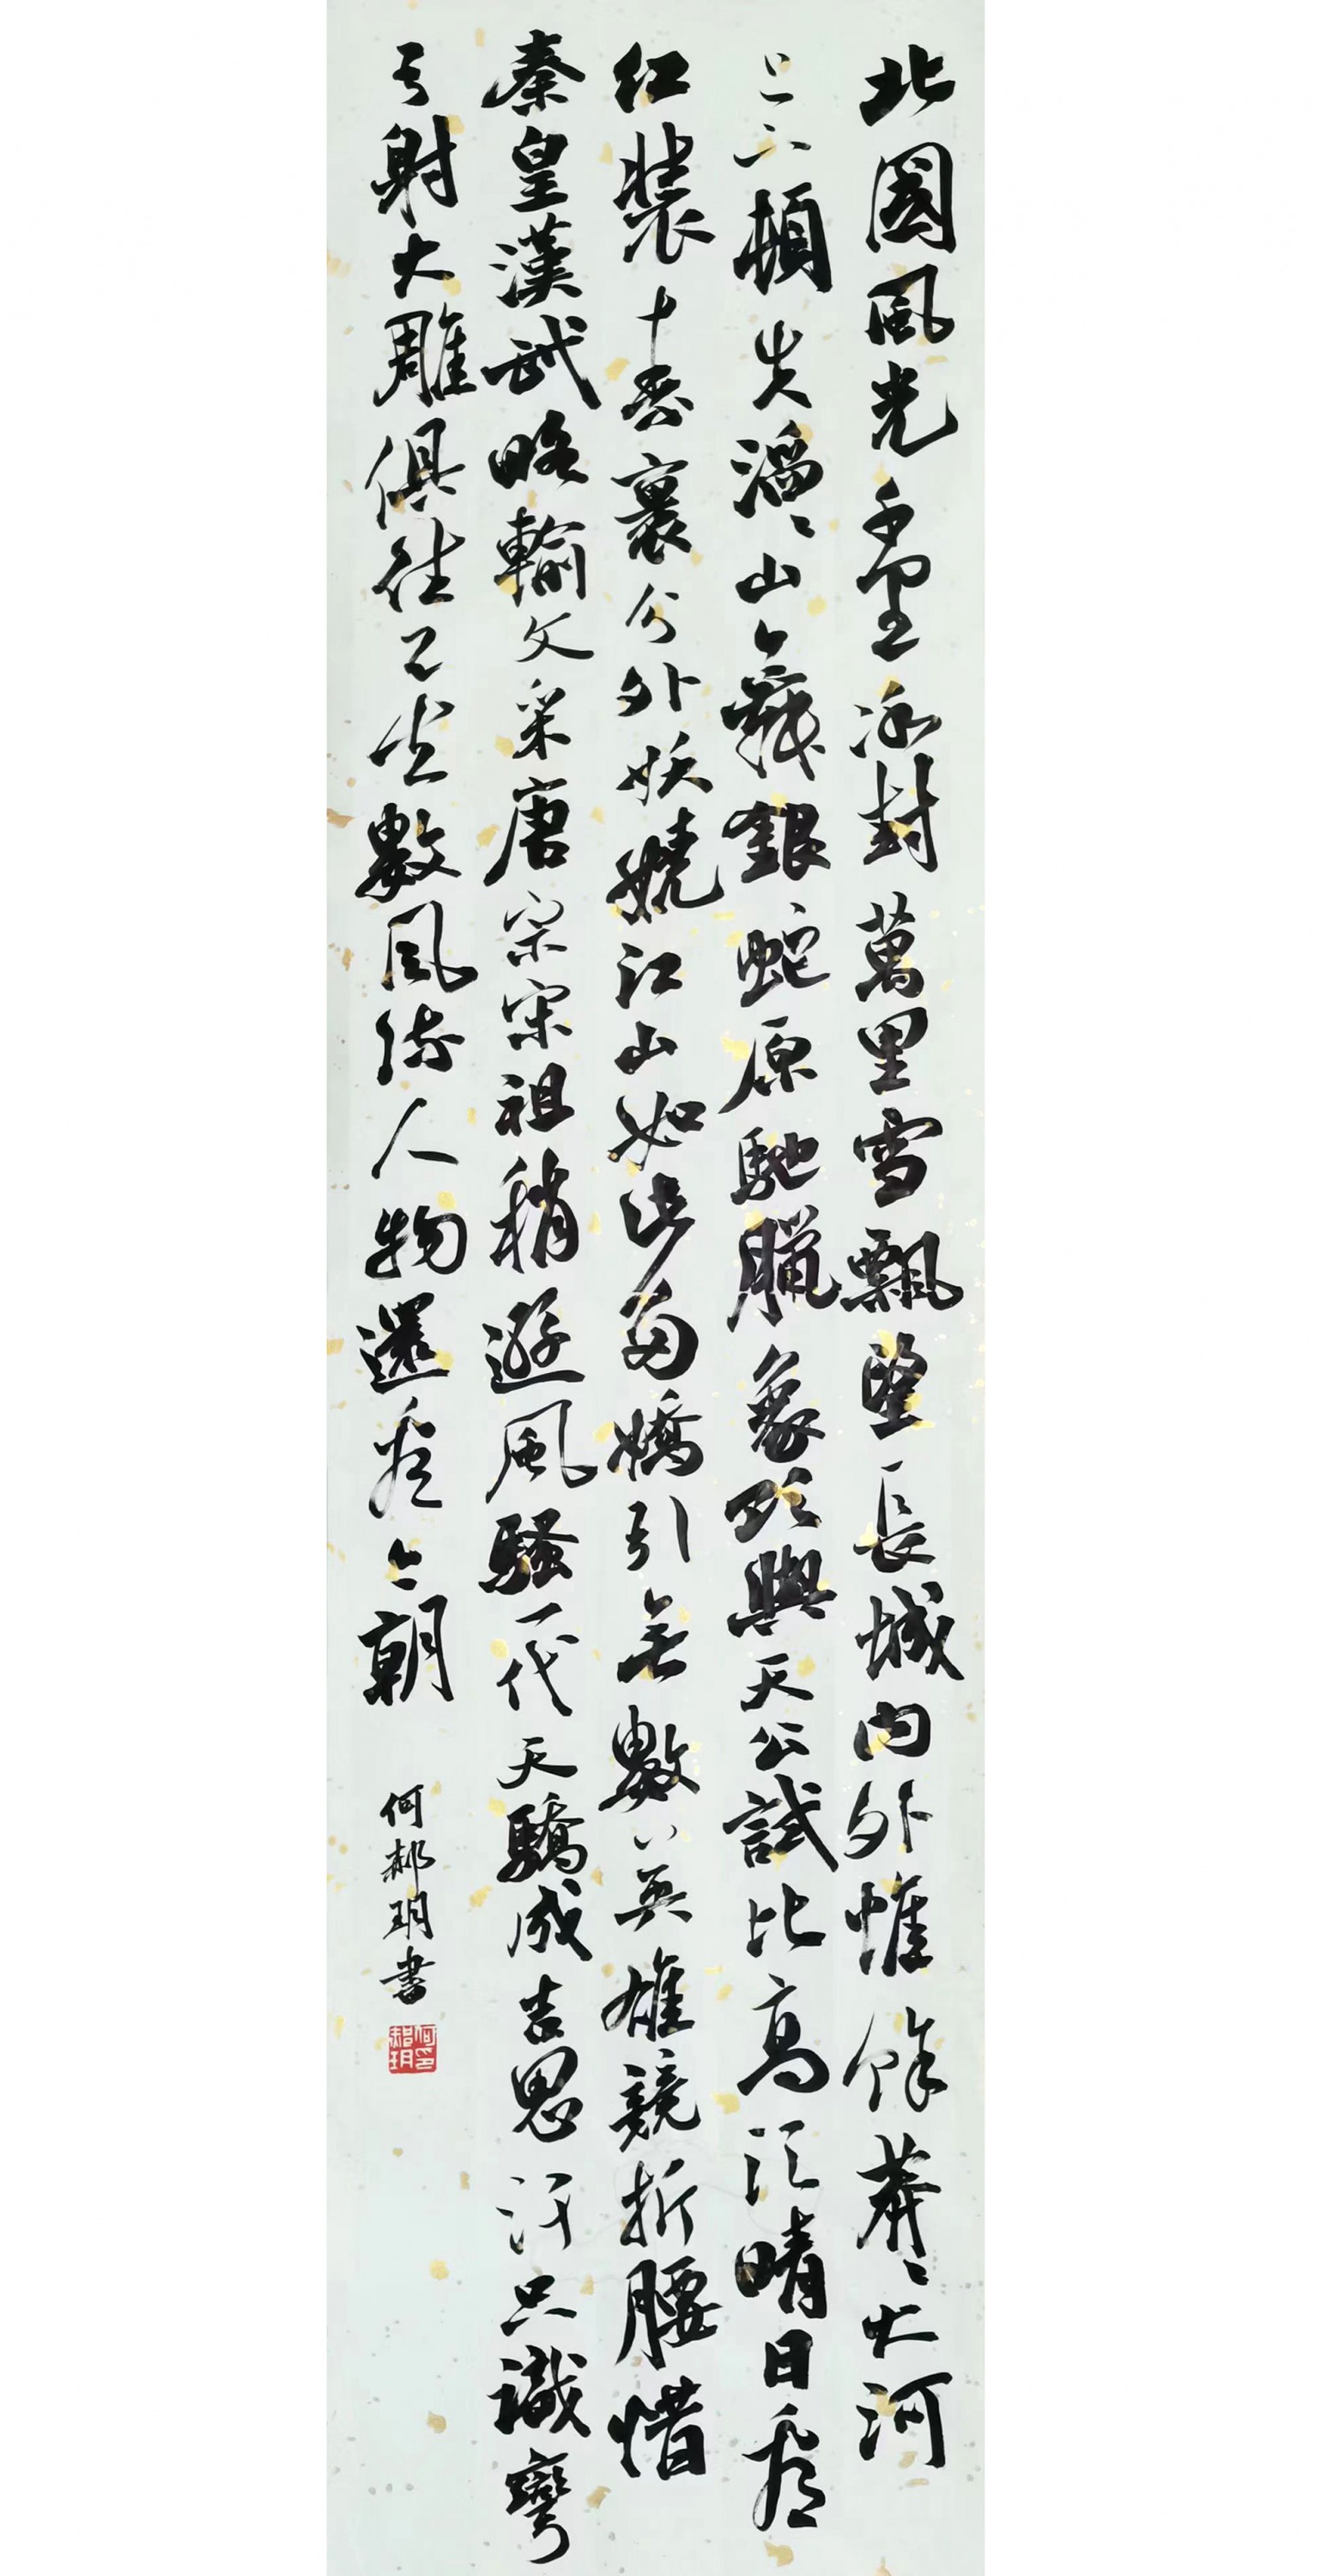 北國風光千里冰封萬里雪飄望長城內外惟餘莽〻大河
上下頓失滔〻山舞銀蛇原馳臘象欲與天公試比高須晴日看
紅裝素裹分外妖嬈江山如此多嬌引無數英雄競折腰惜
秦皇漢武略輸文采唐宗宋祖稍遜風騷一代天驕成吉思汗只識彎
弓射大雕俱往矣數風流人物還看今朝
何郝玥書
何印郝玥